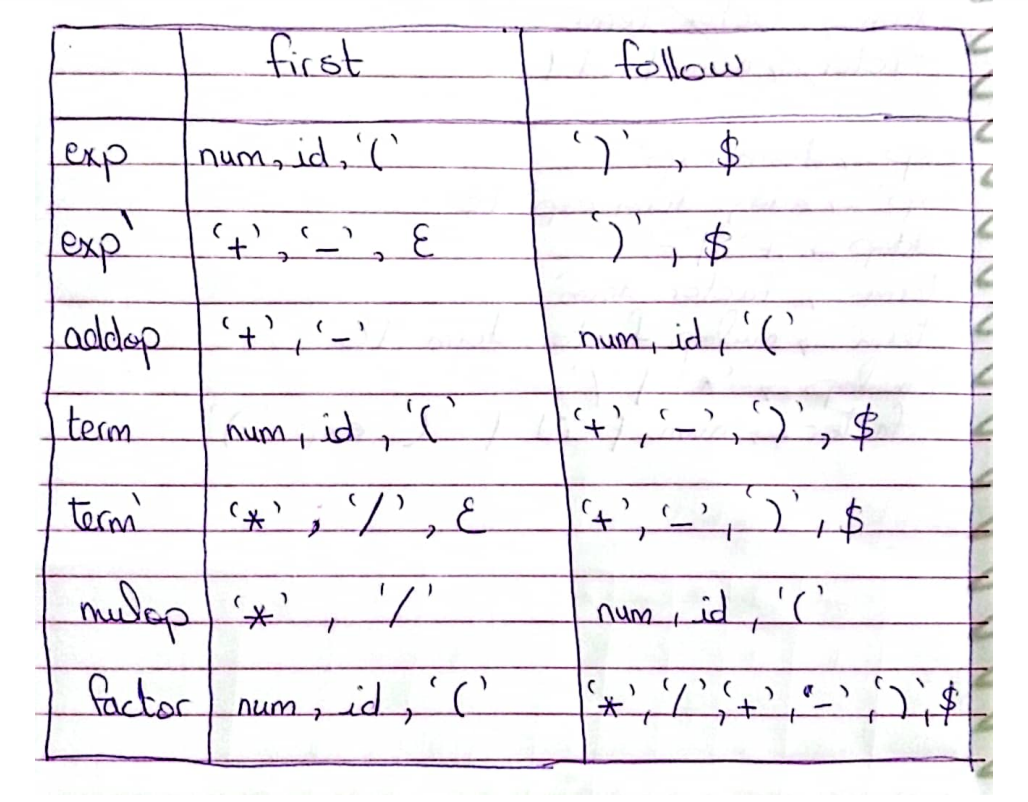 first follow
exp num, id, '(' ')' , $
exp' '+', '-', ε ')' , $
addop '+', '-' num, id, '('
term num, id, '(' '+', '-', ')', $
term' '*', '/', ε '+', '-', ')', $
mulop '*', '/' num, id, '('
factor num, id, '(' '*', '/', '+', '-', ')', $